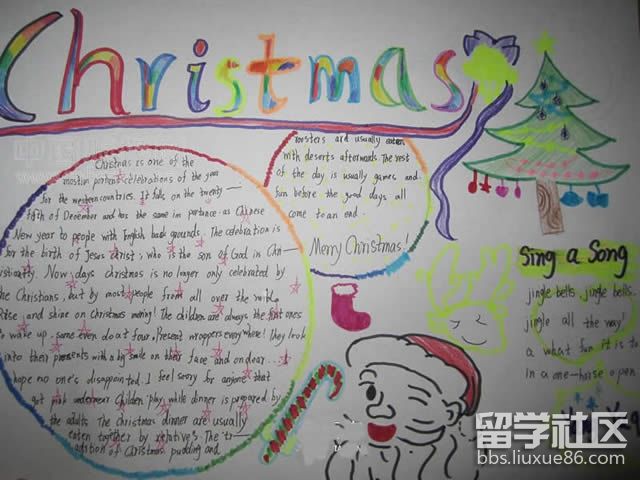 Christmas
Christmas is one of the
most im portant celebrations of the year
for the western countries. It falls on the twenty—
fifth of December and has the same im portance as Chinese
New year to people with English back grounds. The celebration is
for the birth of Jesus christ, who is the son of God in Chr—
istianity. Now days christmas is no longer only celebrated by
the Christians, but by most people from all over the
Rise and shine on Christmas morning! The children are always the first ones
to wake up, some even do at four. Present wrappers everywhere! They look
into their presents with a big smile on their face and on dear...I
hope no one's disappointed I feel sorry for anyone that
got pink underwear Children play while dinner is prepared by
the adults. The christmas dinner are usually
eaten together by relative's The tr—
adition of Christmas pudding and
roosters are usually eaten
with deserts afterwards. The rest
of the day is usually games and
fun before the good days all
come to an end.
Merry Christmas!
Sing a Song
jingle bells, jingle bells.
jingle all the way!
a what fun it is to
in a one-horse open
留学社区
bbs.liuxue86.com